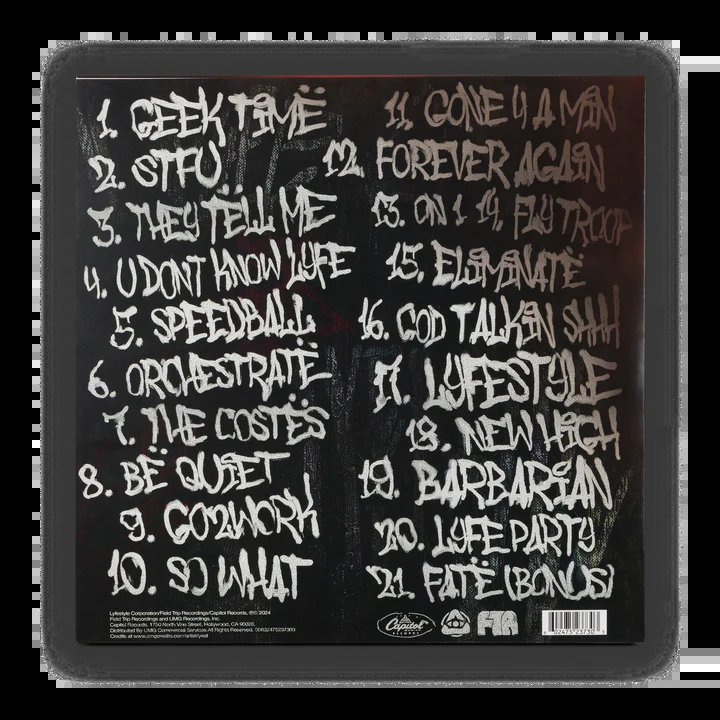 1. GEEK TIMË
2. STFÜ
3. THEY TËLL ME
4. U DONT KNOW LYFE
5. SPEEDBALL
6. ORCHESTRATË
7. THE COSTËS
8. BË QUIET
9. GO2WORK
10. SO WHAT
11. GONE 4 A MIN
12. FOREVER AGAIN
13. ON 1 14. FLY TROOP
15. ELIMINATË
16. GOD TALKIN SHHH
17. LYFESTYLE
18. NEW HIGH
19. BARBARIAN
20. LYFE PARTY
21. FATË (BONUS)
Lyfestyle Corporation/Field Trip Recordings/Capitol Records, ℗© 2024
Field Trip Recordings and UMG Recordings, Inc.
Capitol Records, 1750 North Vine Street, Hollywood, CA 90028.
Distributed By UMG Commercial Services All Rights Reserved.
Capitol
RECORDS
FTR